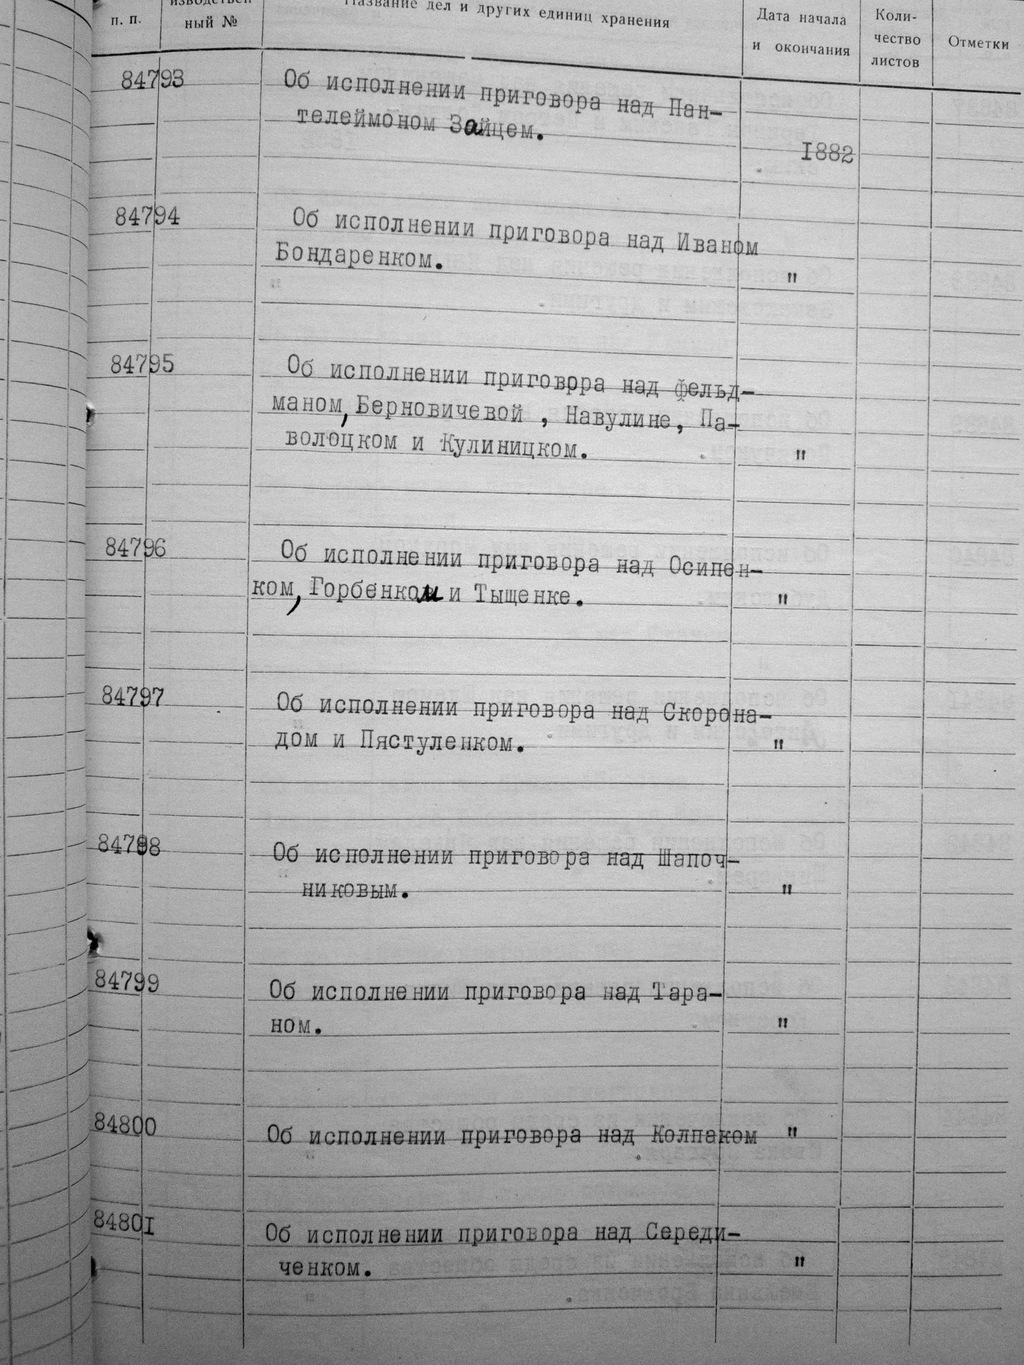 п. п.
ный №
Название дел и других единиц хранения
Дата начала
и окончания
Коли-
чество
листов
Отметки
84793
Об исполнении приговора над Пан-
телеймоном Зайцем.
1882
84794
Об исполнении приговора над Иваном
Бондаренком.
"
84795
Об исполнении приговрра над фельд-
маном, Берновичевой , Навулине, Па-
волоцком и Кулиницком.
"
84796
Об исполнении приговора над Осипен-
ком, Горбенком и Тыщенке.
"
84797
Об исполнении приговора над Скорона-
дом и Пястуленком.
"
84798
Об исполнении приговора над Шапоч-
никовым.
"
84799
Об исполнении приговора над Тара-
ном.
"
84800
Об исполнении приговора над Колпаком
"
84801
Об исполнении приговора над Середи-
ченком.
"